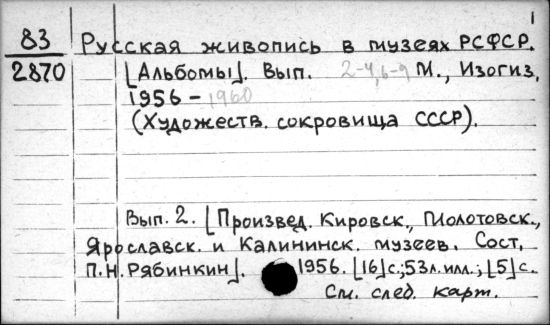 1
83 Русская живопись в музеях РСФСР.
2870 [Альбомы]. Вып. 2-4,6-9 М., Изогиз,
1956 - 1960
(Художеств. сокровища СССР).
Вып. 2. [Произвед. Кировск., Молотовск.,
Ярославск. и Калининск. музеев. Сост.
П.Н. Рябинкин]. 1956. [16] с.; 53 л. илл.; [5] с.
См. след. карт.